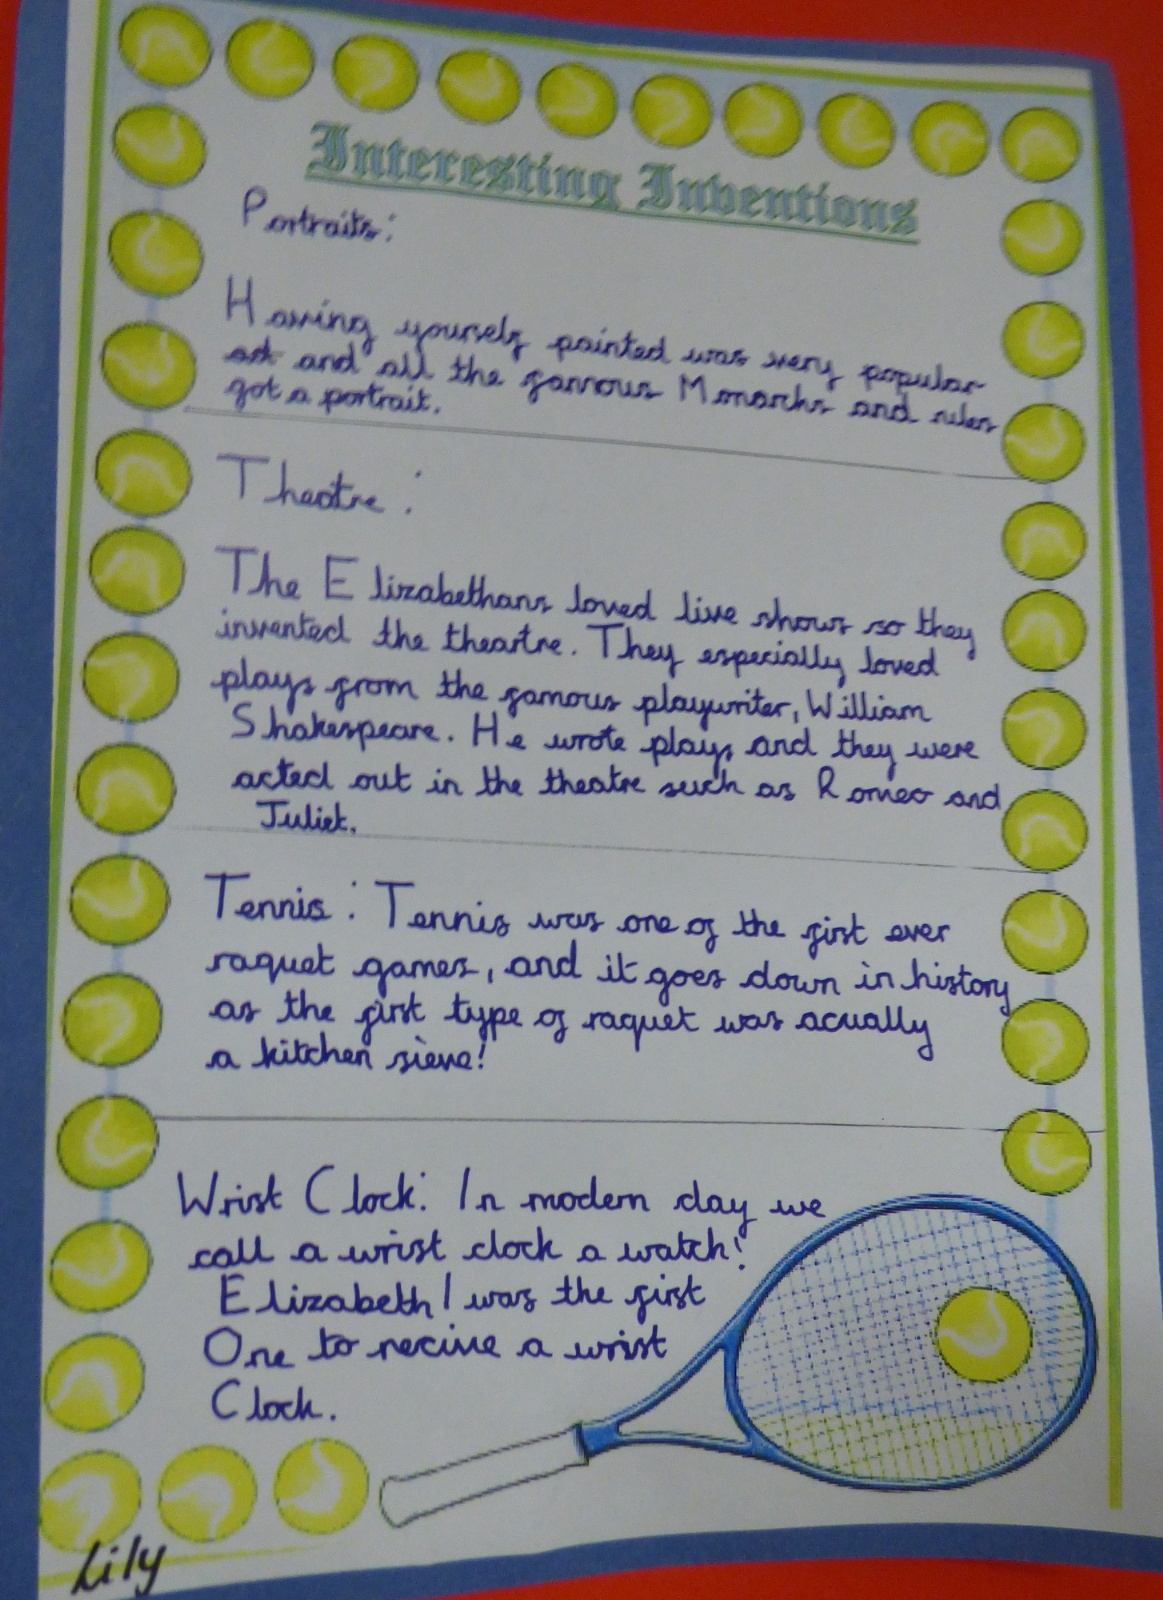 Interesting Inventions
Portraits:
Having yourself painted was very popular
and all the famous Monarchs and rulers
got a portrait.
Theatre:
The Elizabethans loved live shows so they
invented the theartre. They especially loved
plays from the famous playwriter, William
Shakespeare. He wrote plays and they were
acted out in the theatre such as Romeo and
Juliet.
Tennis: Tennis was one of the first ever
raquet games, and it goes down in history
as the first type of raquet was acually
a kitchen sieve!
Wrist Clock: In modern day we
call a wrist clock a watch!
Elizabeth I was the first
One to recive a wrist
Clock.
Lily